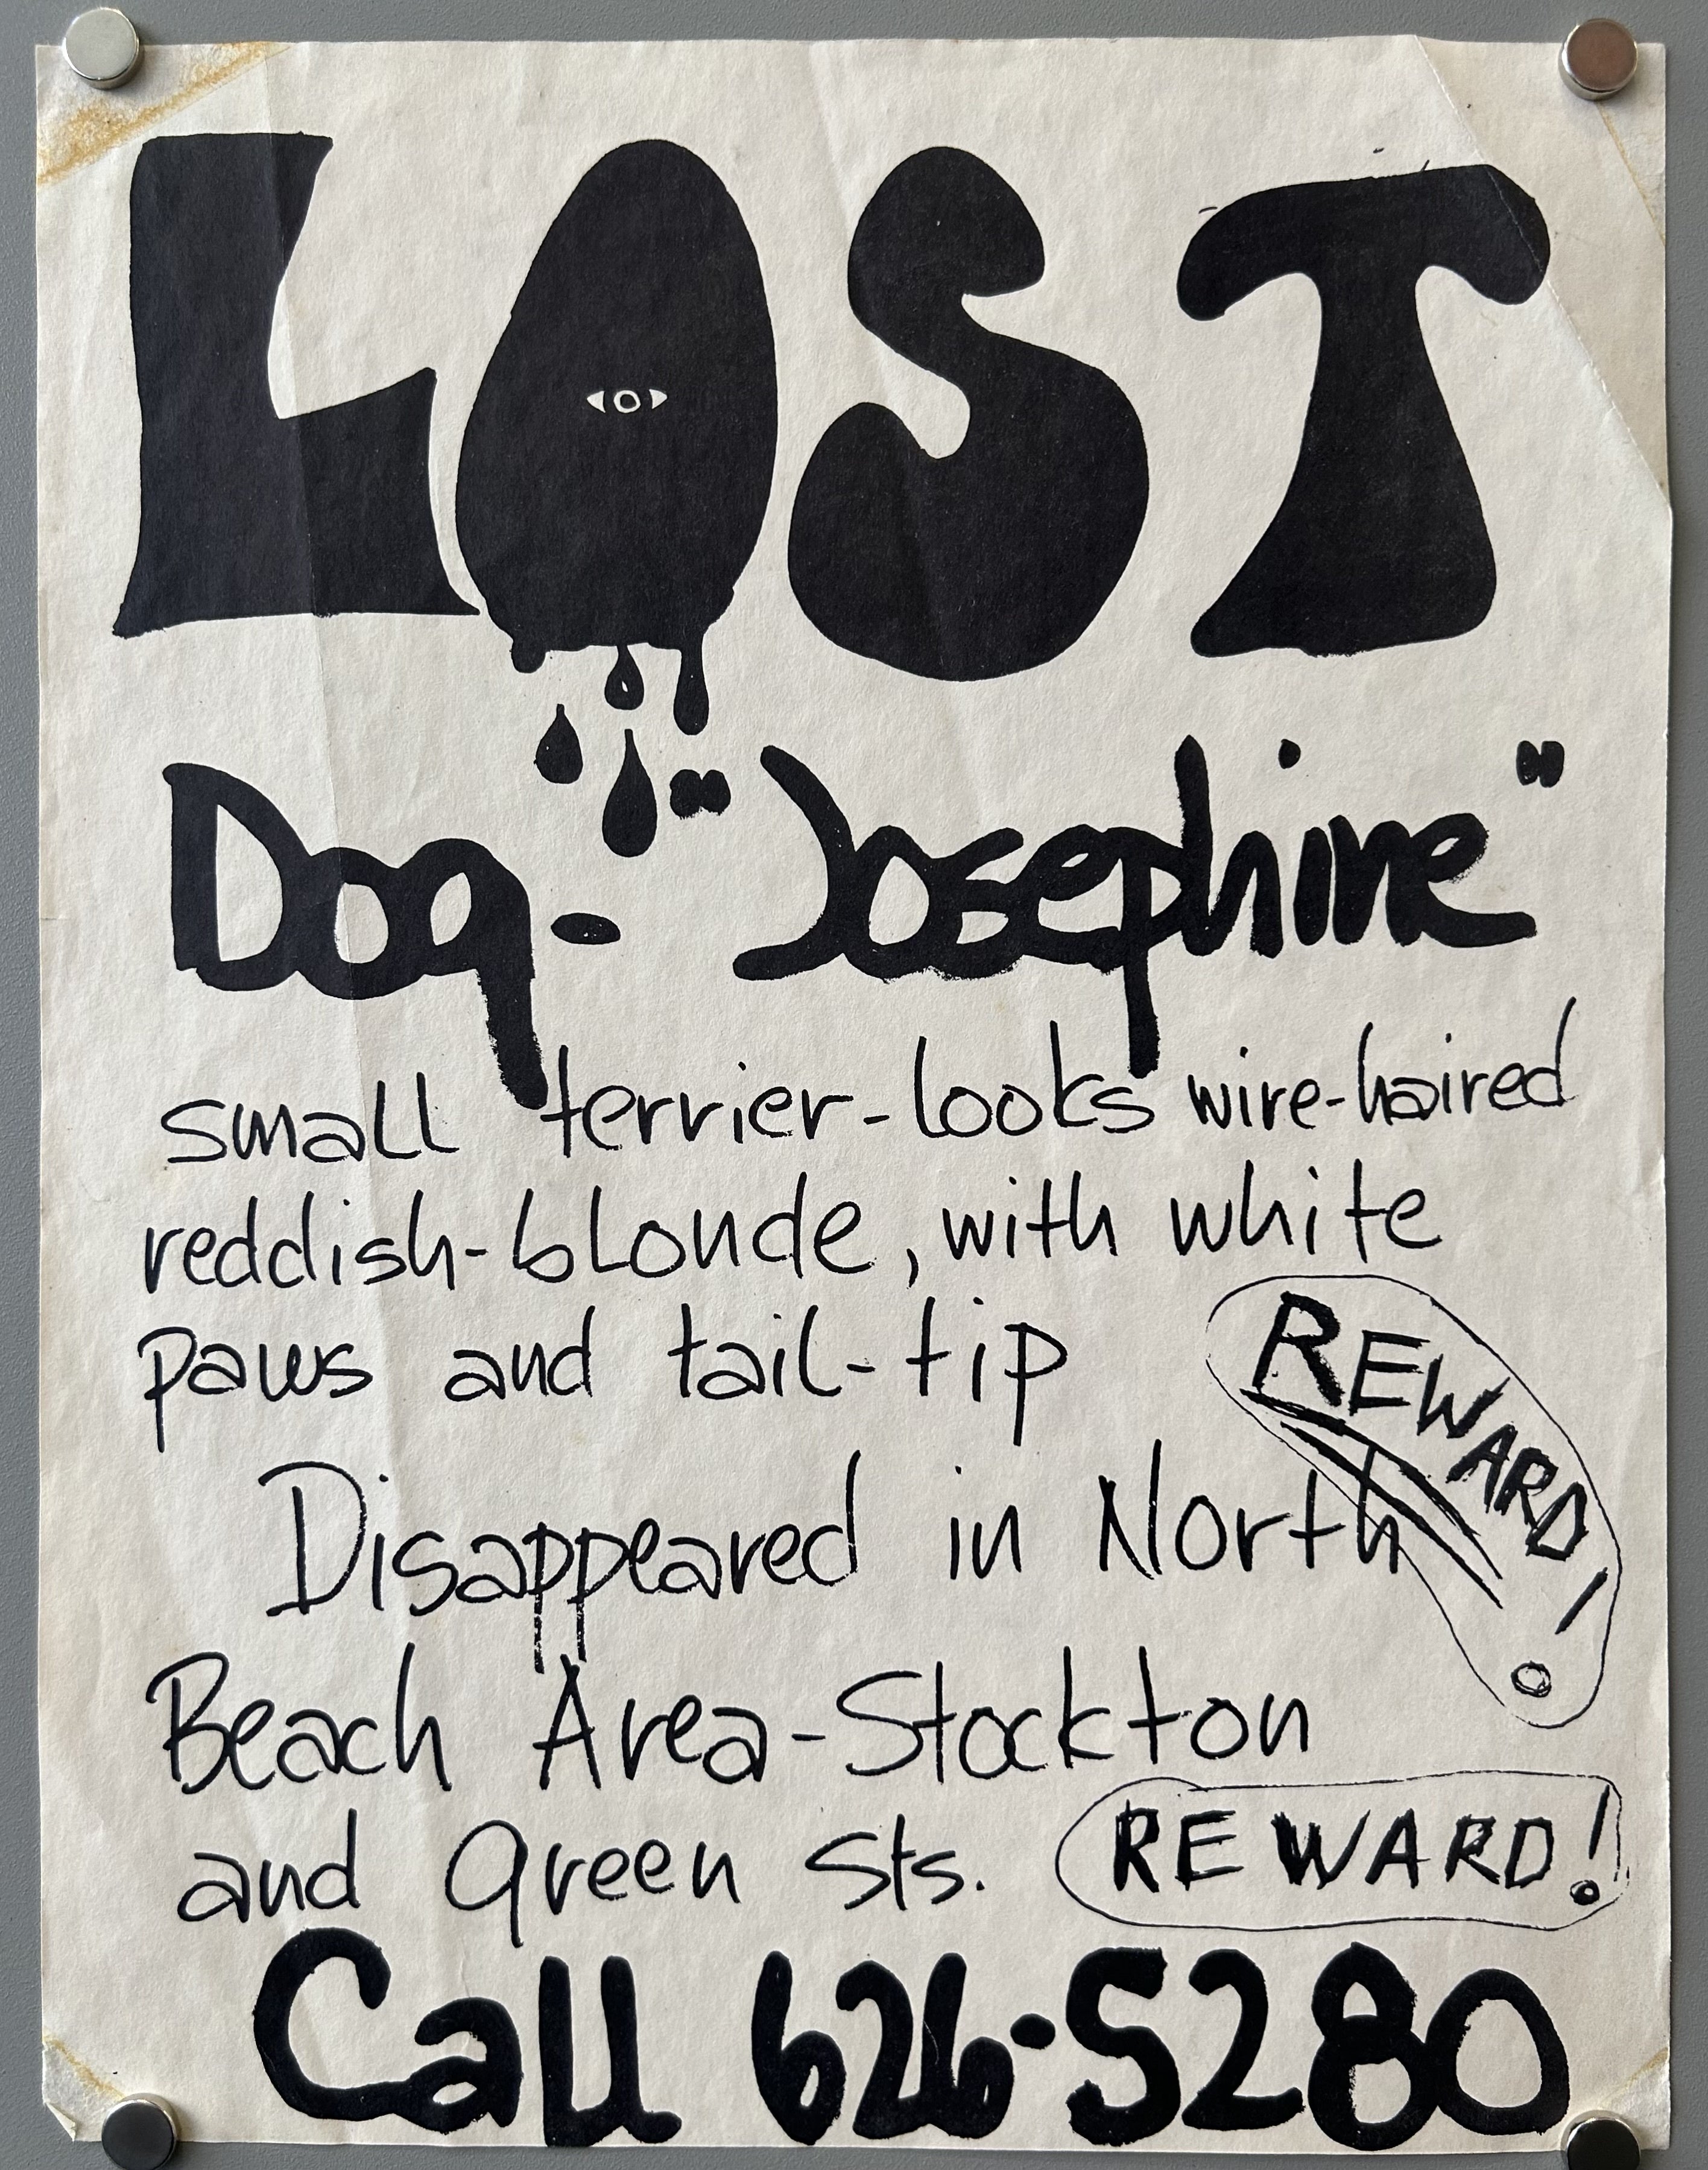 LOST
Dog - "Josephine"
small terrier - looks wire-haired
reddish-blonde, with white
paws and tail-tip
REWARD!
Disappeared in North
Beach Area - Stockton
and Green Sts.
REWARD!
Call 626-5280